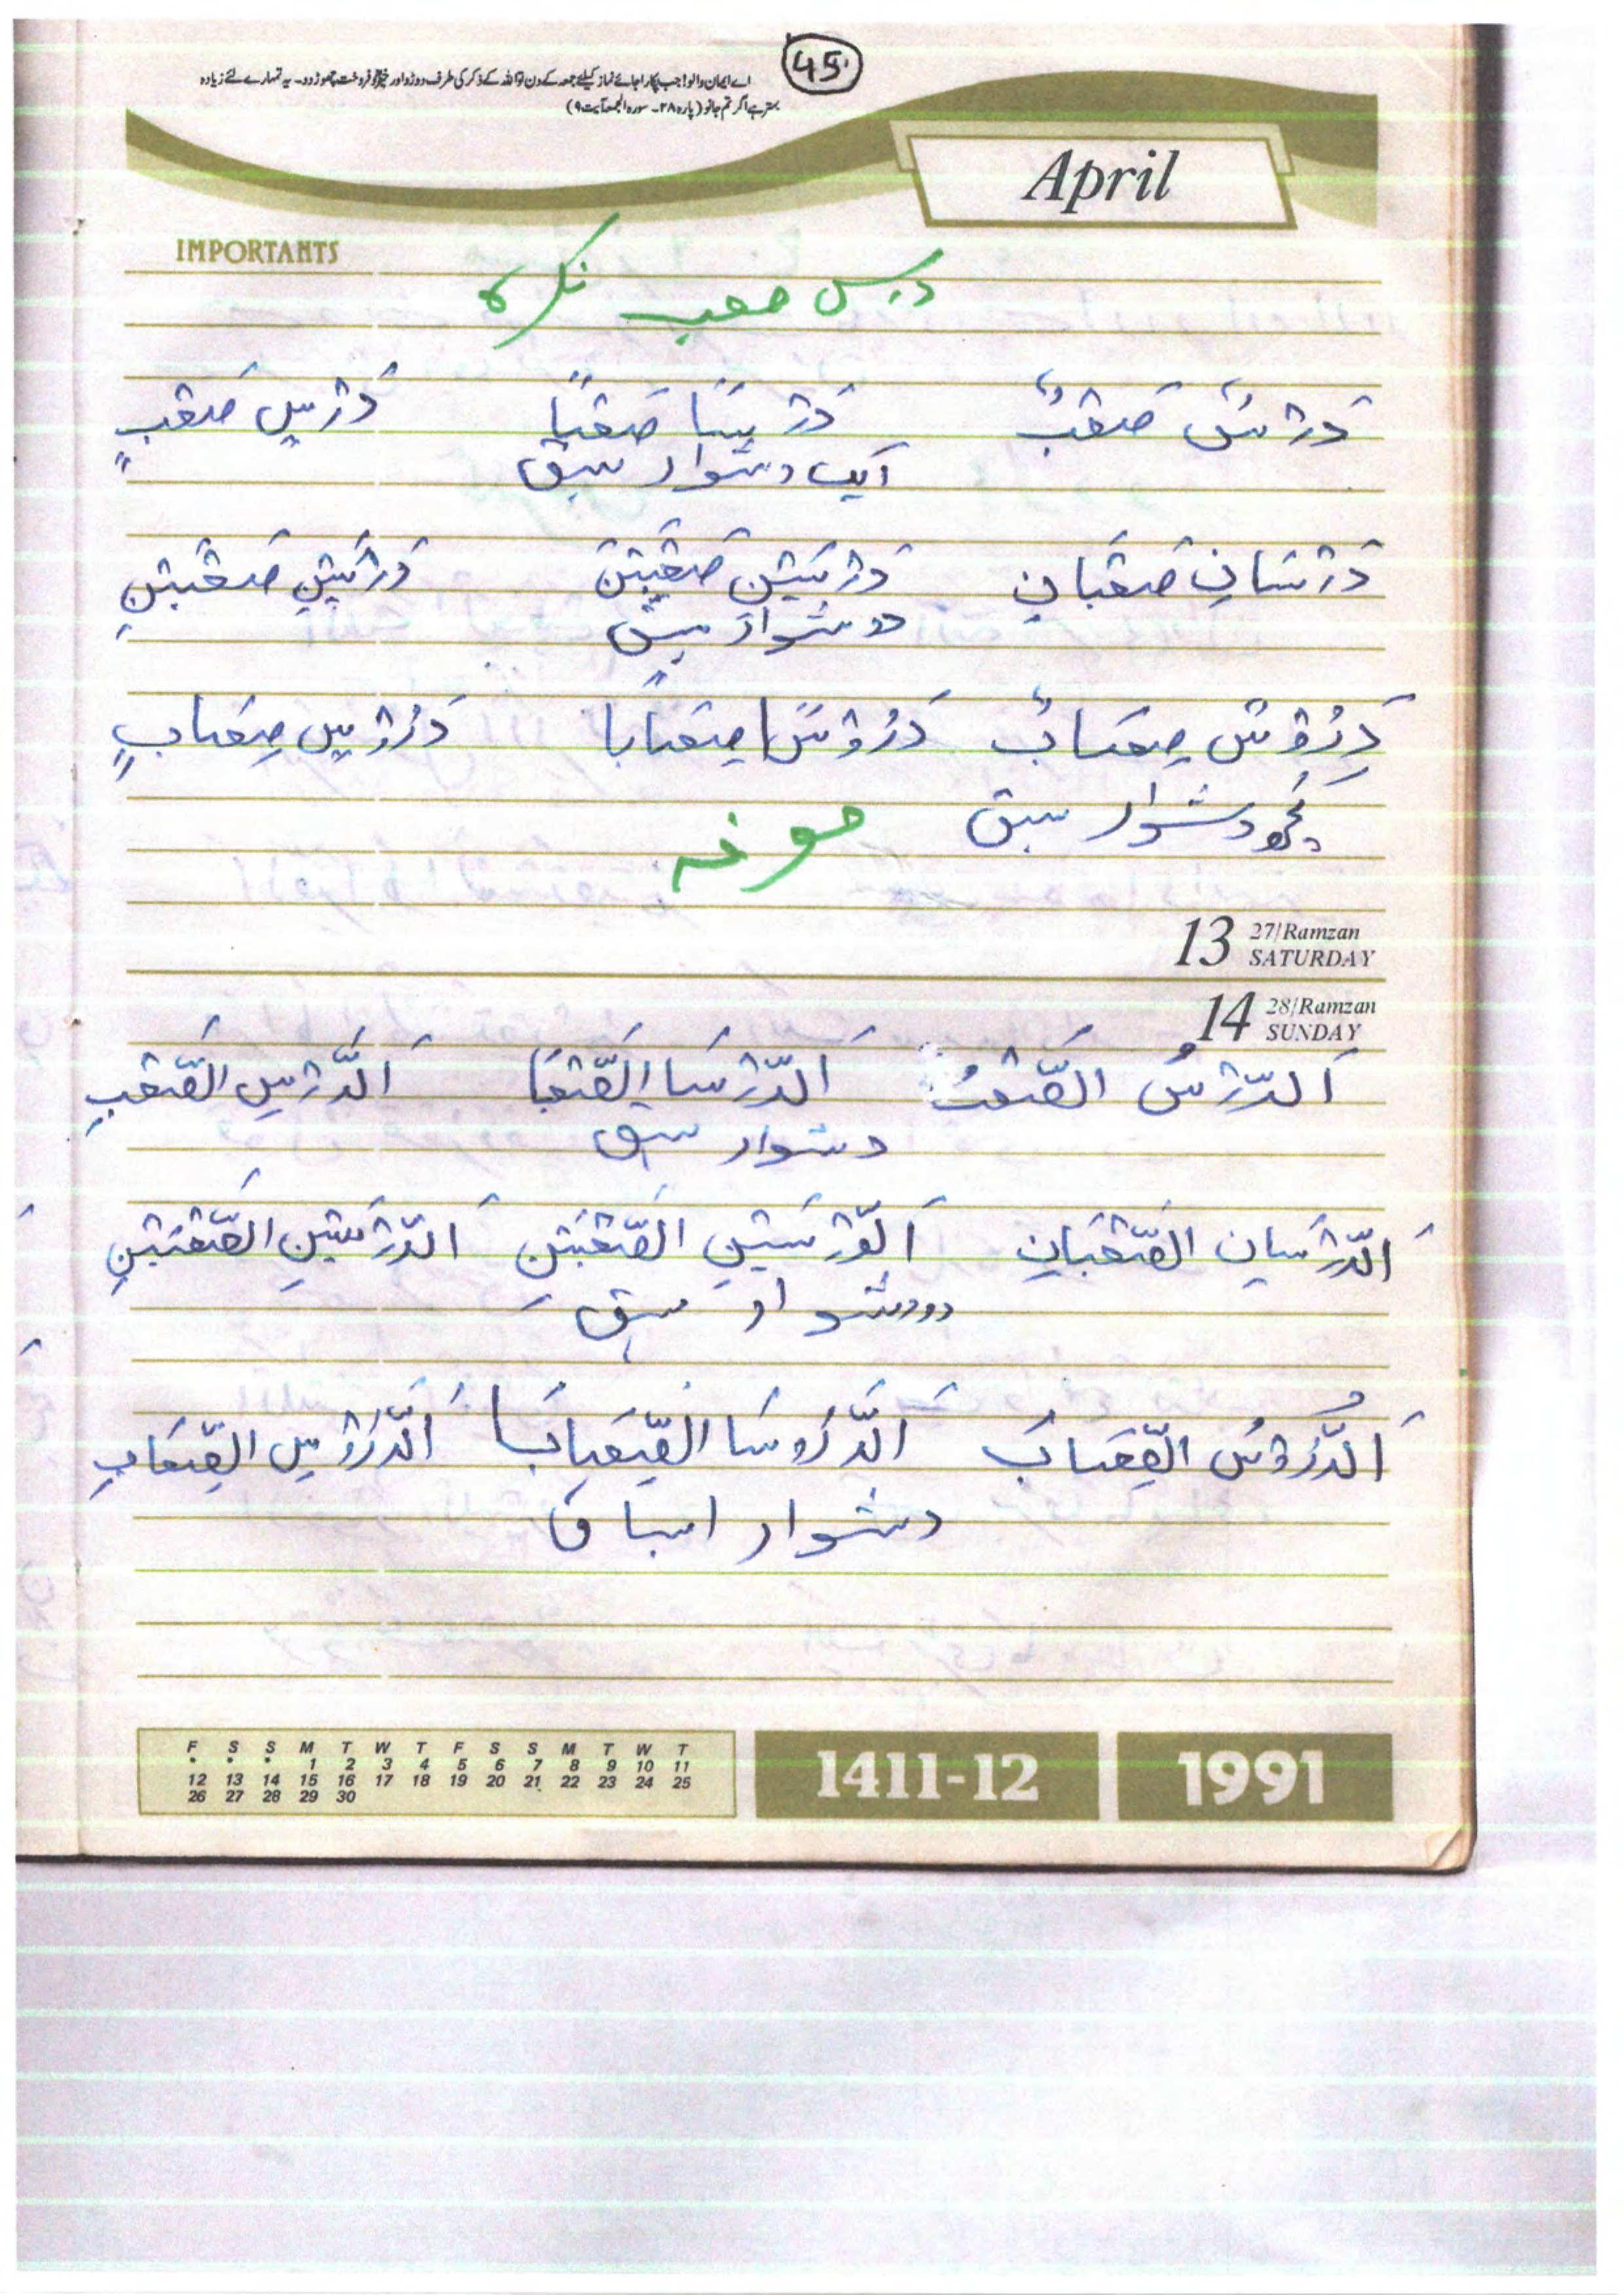 45
اے ایمان والو! جب پکارا جائے نماز کیلئے جمعہ کے دن تو اللہ کے ذکر کی طرف دوڑو اور خرید و فروخت چھوڑ دو۔ یہ تمہارے لئے زیادہ
بہتر ہے اگر تم جانو (پارہ ۲۸۔ سورہ الجمعہ آیت ۹)
April
IMPORTANTS
درس صعب نکرہ
دَرْسٌ صَعْبٌ دَرْسًا صَعْبًا دَرْسٍ صَعْبٍ
ایک دشوار سبق
دَرْسَانِ صَعْبَانِ دَرْسَیْنِ صَعْبَیْنِ دَرْسَیْنِ صَعْبَیْنِ
دو دشوار سبق
دُرُوْسٌ صِعَابٌ دُرُوْسًا صِعَابًا دُرُوْسٍ صِعَابٍ
کچھ دشوار سبق
معرفہ
13 27/Ramzan SATURDAY
14 28/Ramzan SUNDAY
اَلدَّرْسُ الصَّعْبُ اَلدَّرْسَا الصَّعْبَا اَلدَّرْسِ الصَّعْبِ
دشوار سبق
اَلدَّرْسَانِ الصَّعْبَانِ اَلدَّرْسَیْنِ الصَّعْبَیْنِ اَلدَّرْسَیْنِ الصَّعْبَیْنِ
دو دشوار سبق
اَلدُّرُوْسُ الصِّعَابُ اَلدُّرُوسَا الصِّعَابَا اَلدُّرُوْسِ الصِّعَابِ
دشوار اسباق
F S S M T W T F S S M T W T
• • • 1 2 3 4 5 6 7 8 9 10 11
12 13 14 15 16 17 18 19 20 21 22 23 24 25
26 27 28 29 30
1411-12 1991